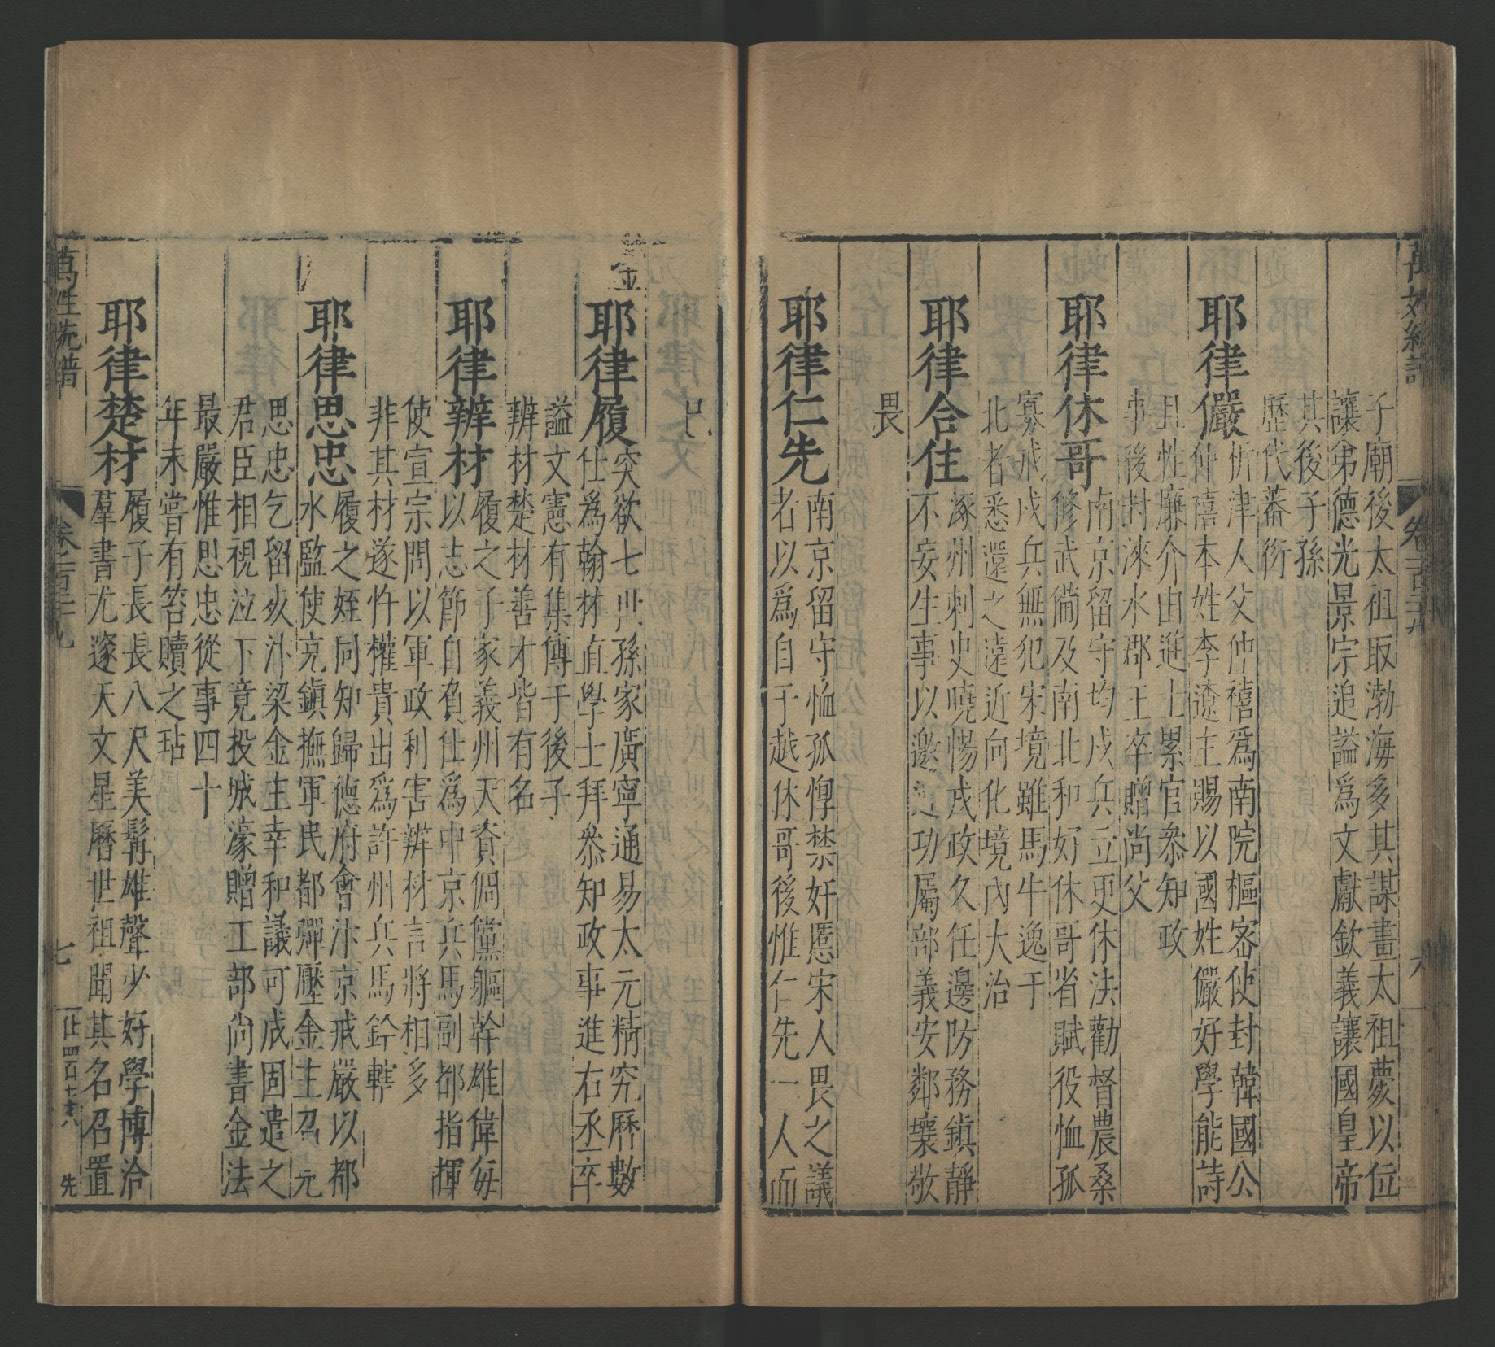 萬姓統譜
卷一百三十九
六
子廟後太祖取渤海多其謀畫太祖薨以位
讓弟德光景宗追謚爲文獻欽義讓國皇帝
其後子孫
歷代蕃衍
耶律儼
忻津人父仲禧爲南院樞密使封韓國公
仲禧本姓李遼主賜以國姓儼好學能詩
且性廉介由進士累官叅知政
事後封淶水郡王卒贈尚父
耶律休哥
南京留守均戍兵立更休法勸督農桑
修武備及南北和好休哥省賦役恤孤
寡戒戍兵無犯宋境雖馬牛逸于
北者悉還之遠近向化境內大治
耶律合住
涿州刺史曉暢戎政久任邊防務鎮靜
不妄生事以邀近功屬部義安鄰壤敬
畏
耶律仁先
南京留守恤孤惸禁奸慝宋人畏之議
者以爲自于越休哥後惟仁先一人而
已
金
耶律履
突欲七世孫家廣寧通易太元精究曆數
仕爲翰林直學士拜叅知政事進右丞卒
謚文憲有集傳于後子
辨材楚材善才皆有名
耶律辨材
履之子家義州天資倜儻軀幹雄偉每
以志節自負仕爲中京兵馬副都指揮
使宣宗問以軍政利害辨材言將相多
非其材遂忤權貴出爲許州兵馬鈐轄
耶律思忠
履之姪同知歸德府會汴京戒嚴以都
水監使充鎮撫軍民都彈壓金主召元
思忠乞留奴汴梁金主幸和議可成固遣之
君臣相視泣下竟投城濠贈工部尚書金法
最嚴惟思忠從事四十
年未嘗有笞贖之玷
耶律楚材
履子長長八尺美髯雄聲少好學博洽
羣書尤邃天文星曆世祖聞其名召置
萬姓統譜
卷一百三十九
七
先